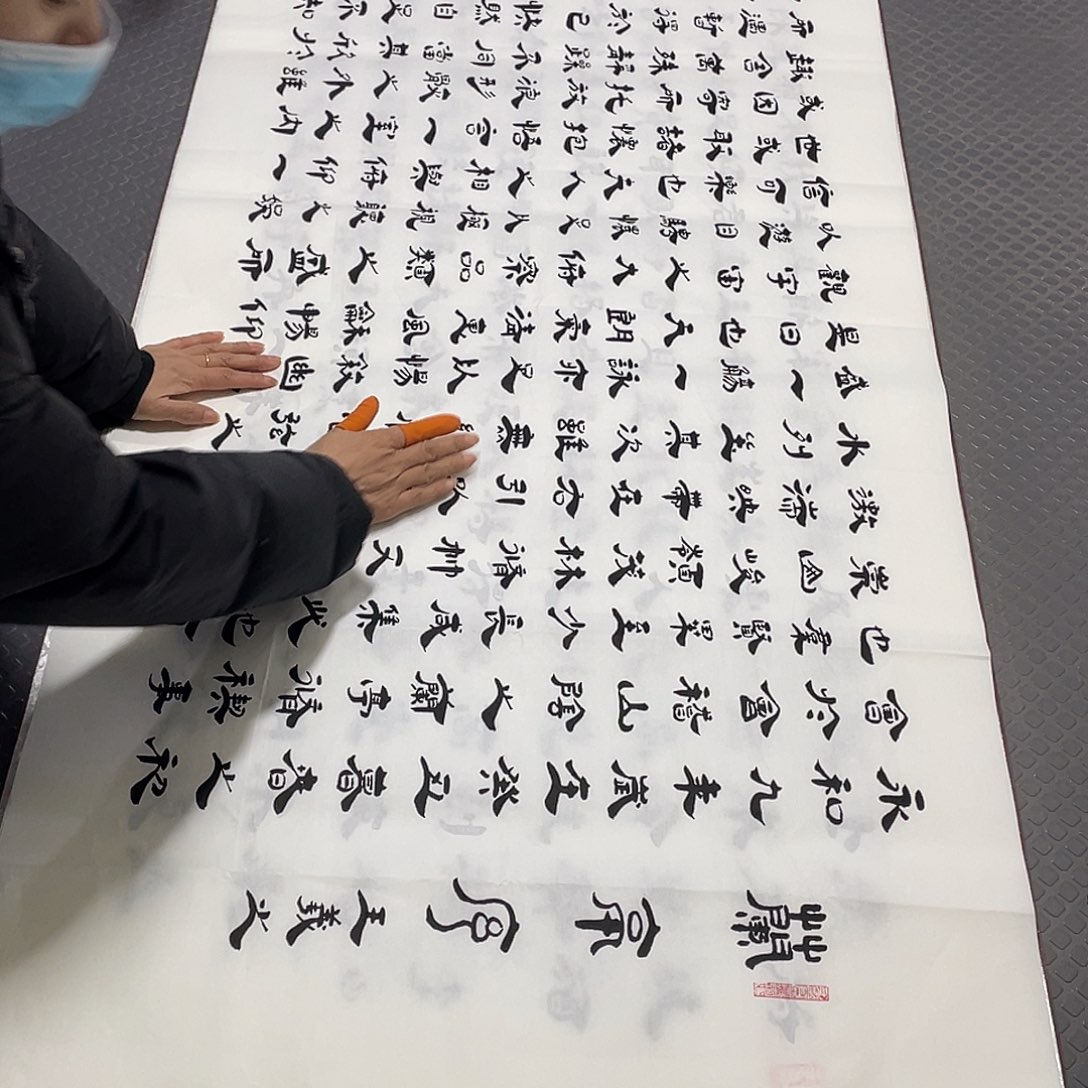 蘭亭序 王羲之
永和九年歲在癸丑暮春之初
會於會稽山陰之蘭亭脩禊事
也羣賢畢至少長咸集此地
崇山峻領茂林脩竹又
激湍映帶左右引以
水列坐其次雖無絃之
盛一觴一詠亦足以暢敘幽
是日也天朗氣清惠風龢暢仰
觀宇宙之大俯察品類之盛所
以遊目騁懷足以極視聽之娛
信可樂也夫人之相與俯仰一
世或取諸懷抱悟言一室之內
或因寄所託放浪形骸之外雖
趣舍萬殊靜躁不同當其欣於
所遇暫得於己快然自足不知